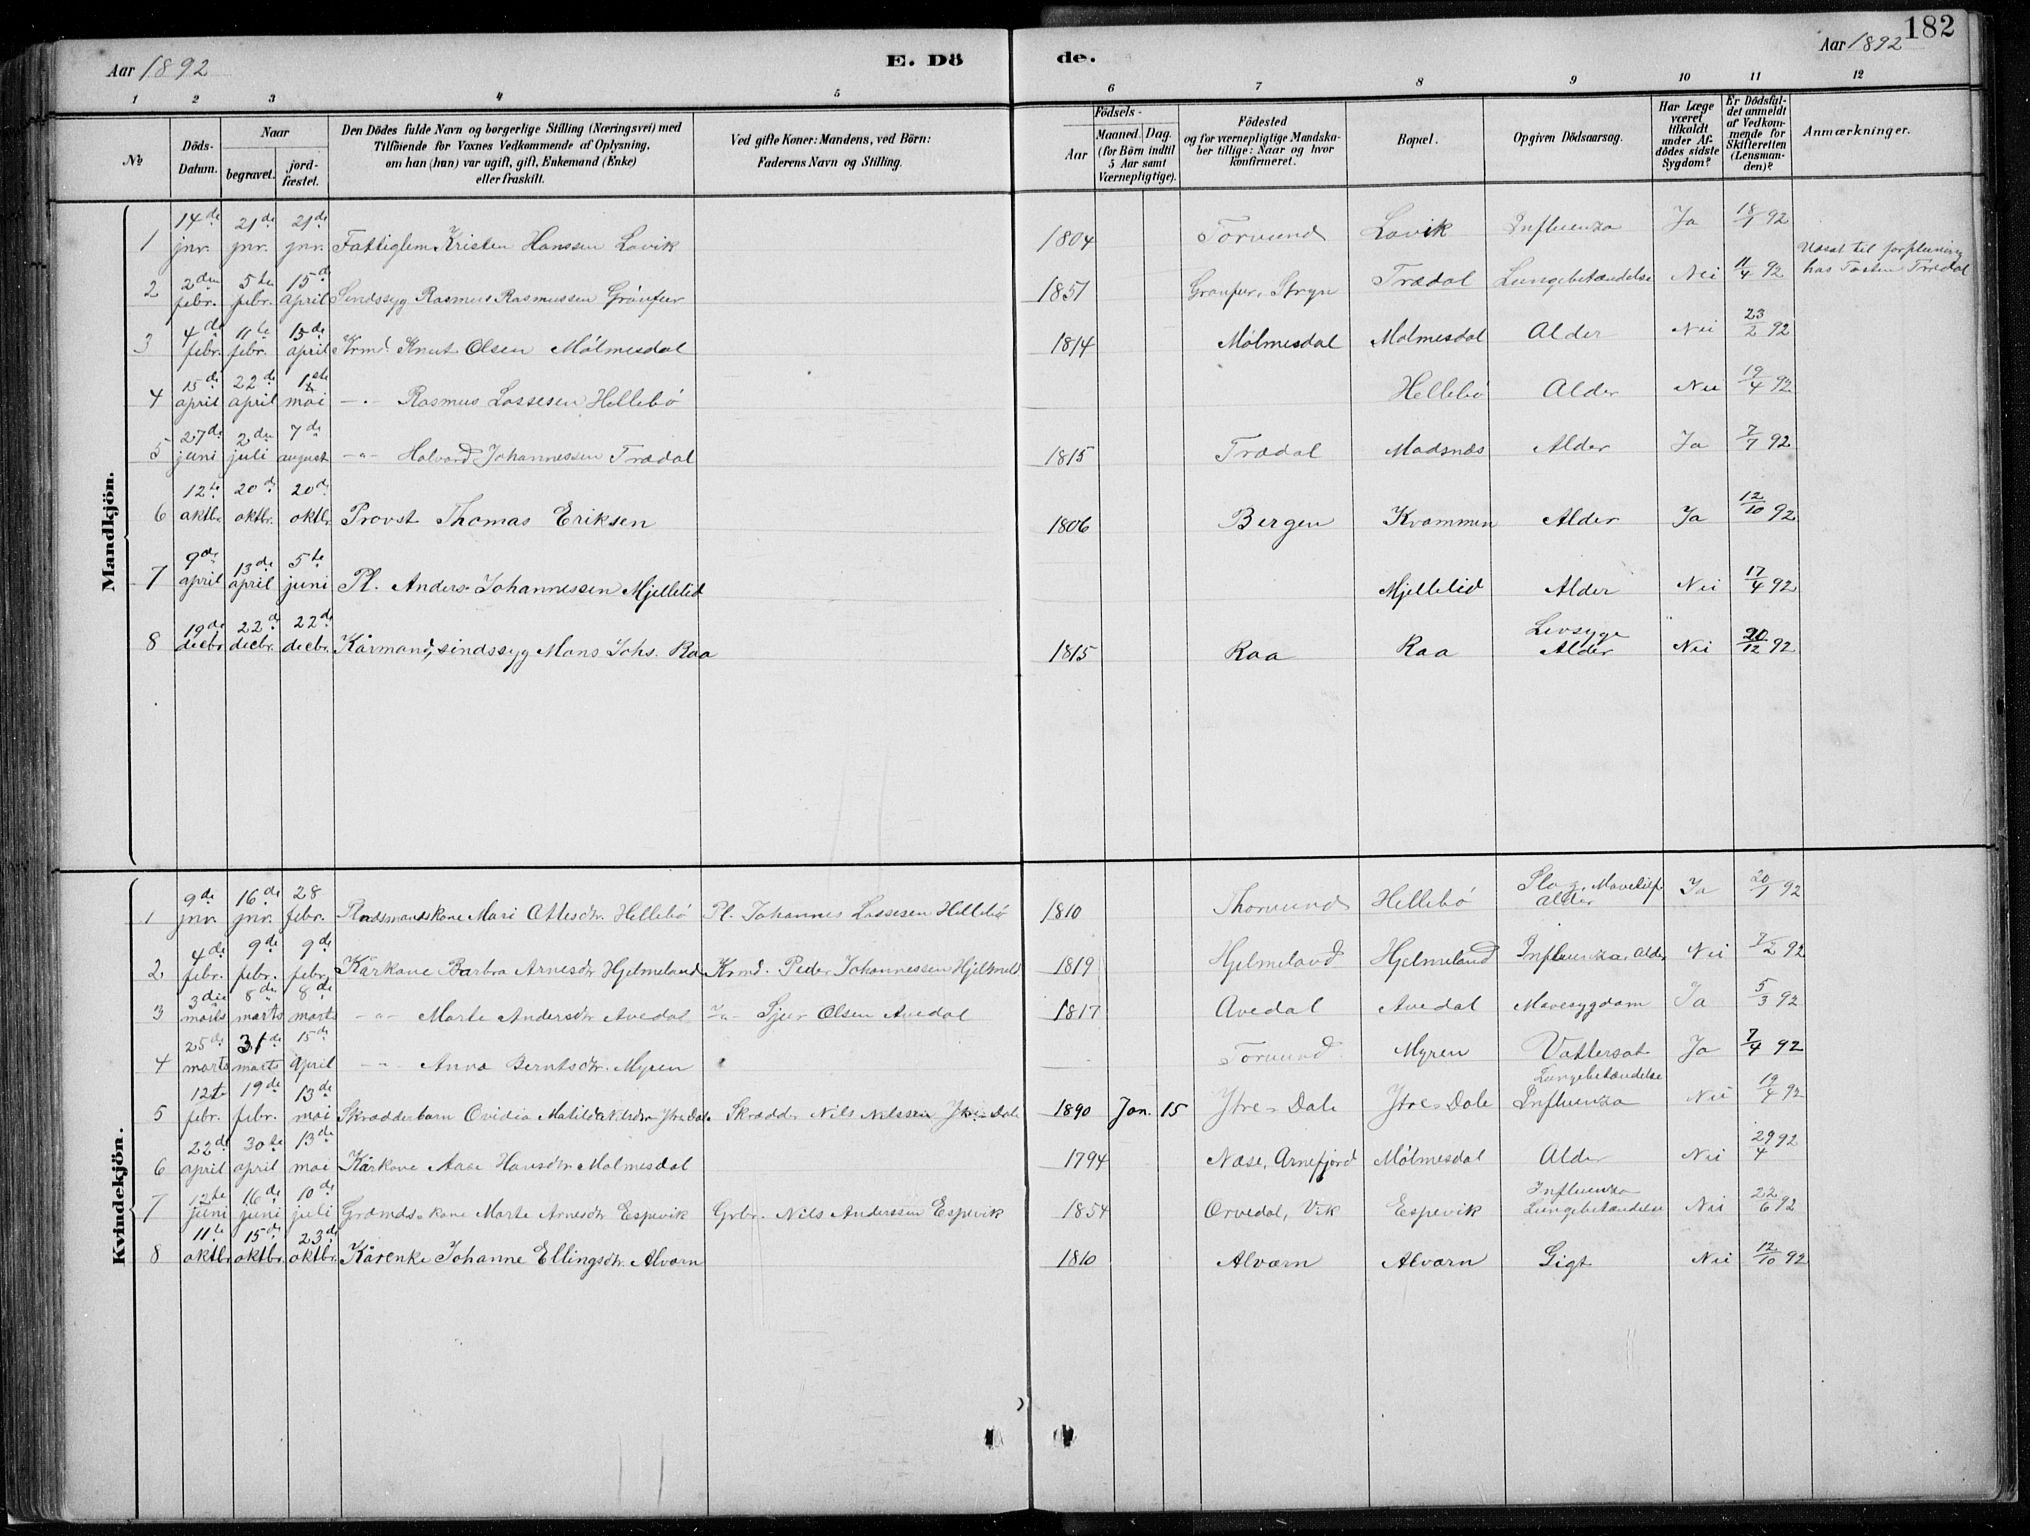 182
Aar 1892 E. Dö de. Aar 1892
1 2 3 4 5 6 7 8 9 10 11 12
№
Döds-Datum.
Naar
begravet.
jord-fæstet.
Den Dödes fulde Navn og borgerlige Stilling (Næringsvei) med
Tilföiende for Voxnes Vedkommende af Oplysning,
om han (hun) var ugift, gift, Enkemand (Enke)
eller fraskilt.
Ved gifte Koner: Mandens, ved Börn:
Faderens Navn og Stilling.
Födsels-
Aar
Maaned. Dag.
(for Börn indtil
5 Aar samt
Værnepligtige).
Födested
og for værnepligtige Mandska-
ber tillige: Naar og hvor
konfirmeret.
Bopæl.
Opgiven Dödsaarsag.
Har Læge
været
tilkaldt
under Af-
dödes sidste
Sygdom?
Er Dödsfal-
det anmeldt
af Vedkom-
mende for
Skifteretten
(Lensman-
den)?
Anmærkninger.
Mandkjön.
1 14de jnr. 21de jnr. 21de jnr. Fattiglem Kristen Hanssen Lavik 1804 Torvund Lavik Influenza Ja 18/1 92
2 2den febr. 5te febr. 15d april Sindssyg Rasmus Rasmussen Grönfur 1851 Gronfur, Stryn Trædal Lungebetændelse Nei 11/4 92 Udsat til forpleining hos Trædal
3 4de febr. 11te febr. 15de april Krmd. Knut Olsen Mölmesdal 1814 Mölmesdal Molmesdal Alder Nei 23/2 92
4 15de april 22de april 1ste mai -"- Rasmus Lassesen Hellebö Hellebö Alder Nei 19/4 92
5 27de juni 2den juli 7de august -"- Halvard Johannessen Trædal 1815 Trædal Madsnæs Alder Ja 7/7 92
6 12te oktbr. 20d oktbr. 20d oktbr. Provst Thomas Eriksen 1806 Bergen Kvammen Alder Ja 12/10 92
7 9de april 13de april 5te juni Pl. Anders Johannessen Mjellelid Mjellelid Alder Nei 17/4 92
8 19de decbr. 22d decbr. 22de decbr. Kårmand, sindssyg Mons Johs. Raa 1815 Raa Raa Alder Nei 20/12 92
Kvindekjön.
1 9de jnr. 16de jnr. 28 febr. Pladsmandskone Mari Ottesdtr. Hellebö Pl. Johannes Lassesen Hellebö 1810 Thorvund Hellebö Alder Ja 20/1 92
2 4de febr. 9de febr. 9de febr. Kårkone Barbra Arnesdtr Hjelmeland Krmd. Peder Johannessen Hjelmeld 1819 Hjelmeland Hjelmeland Influenza, Alder Nei 7/2 92
3 3die marts 8de marts 8de marts -"- Marte Andersdtr Avedal -"- Sjur Olsen Avedal 1817 Avedal Avedal Mavesygdom Ja 5/3 92
4 25de marts 31de marts 15de April -"- Anna Berntsdtr. Myren Torvund Myren Vattersot Ja 7/4 92
5 12te febr. 19de febr. 13de mai Skrædderbarn Ovidia Matilde Nilsdtr Ytre Dale Skrædd. Nils Nilssen Ytre-Dale 1890 Jan. 15 Ytre-Dale Ytre-Dale Lungebetændelse Influenza Nei 19/4 92
6 22de april 30te april 13de mai Kårkone Aase Hansdtr Molmesdal 1794 Næse, Arnefjord Mölmesdal Alder Nei 29/4 92
7 12te juni 16de juni 10de juli Grdmds-kone Marte Arnesdtr Espevik Grbr. Nils Anderssen Espevik 1854 Orvedal, Vik Espevik Influenza Lungebetændelse Nei 22/6 92
8 11te oktbr. 15de oktbr. 23de oktbr. Kårenke Johanne Ellingsdtr. Alværn 1810 Alværn Alværn Gigt Nei 12/10 92